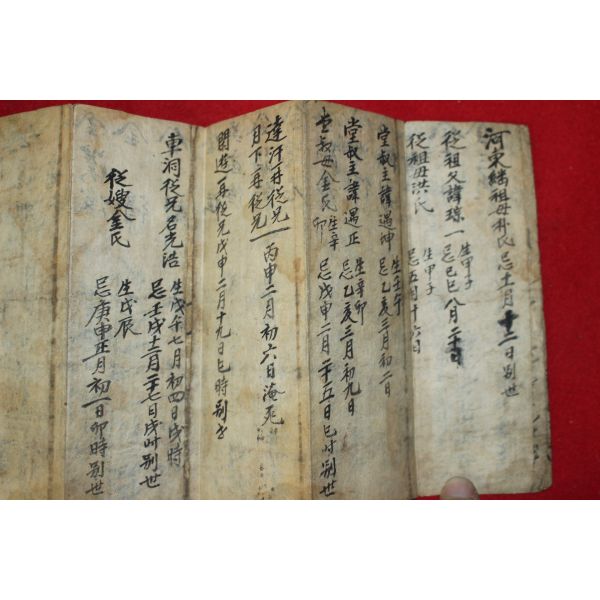 河東繼祖母朴氏 忌十一月十二日別世
從祖父諱琼一 生甲子 忌己巳八月二十日
從祖母洪氏 生甲子 忌五月十六日
堂叔主諱遇坤 生壬午 忌乙亥三月初二日
堂叔主諱遇正 生辛卯 忌乙亥三月初九日
堂叔母金氏 生辛卯 忌戊申二月二十五日巳時別世
達汗再從兄
月下再從兄 丙申二月初六日渰死
再從兄戊申二月十九日巳時別世
車洞從兄名光浩 生戊午七月初四日戌時 忌壬戌十二月二十七日戌时別世
從嫂金氏 生戊辰 忌庚申正月初一日卯時別世